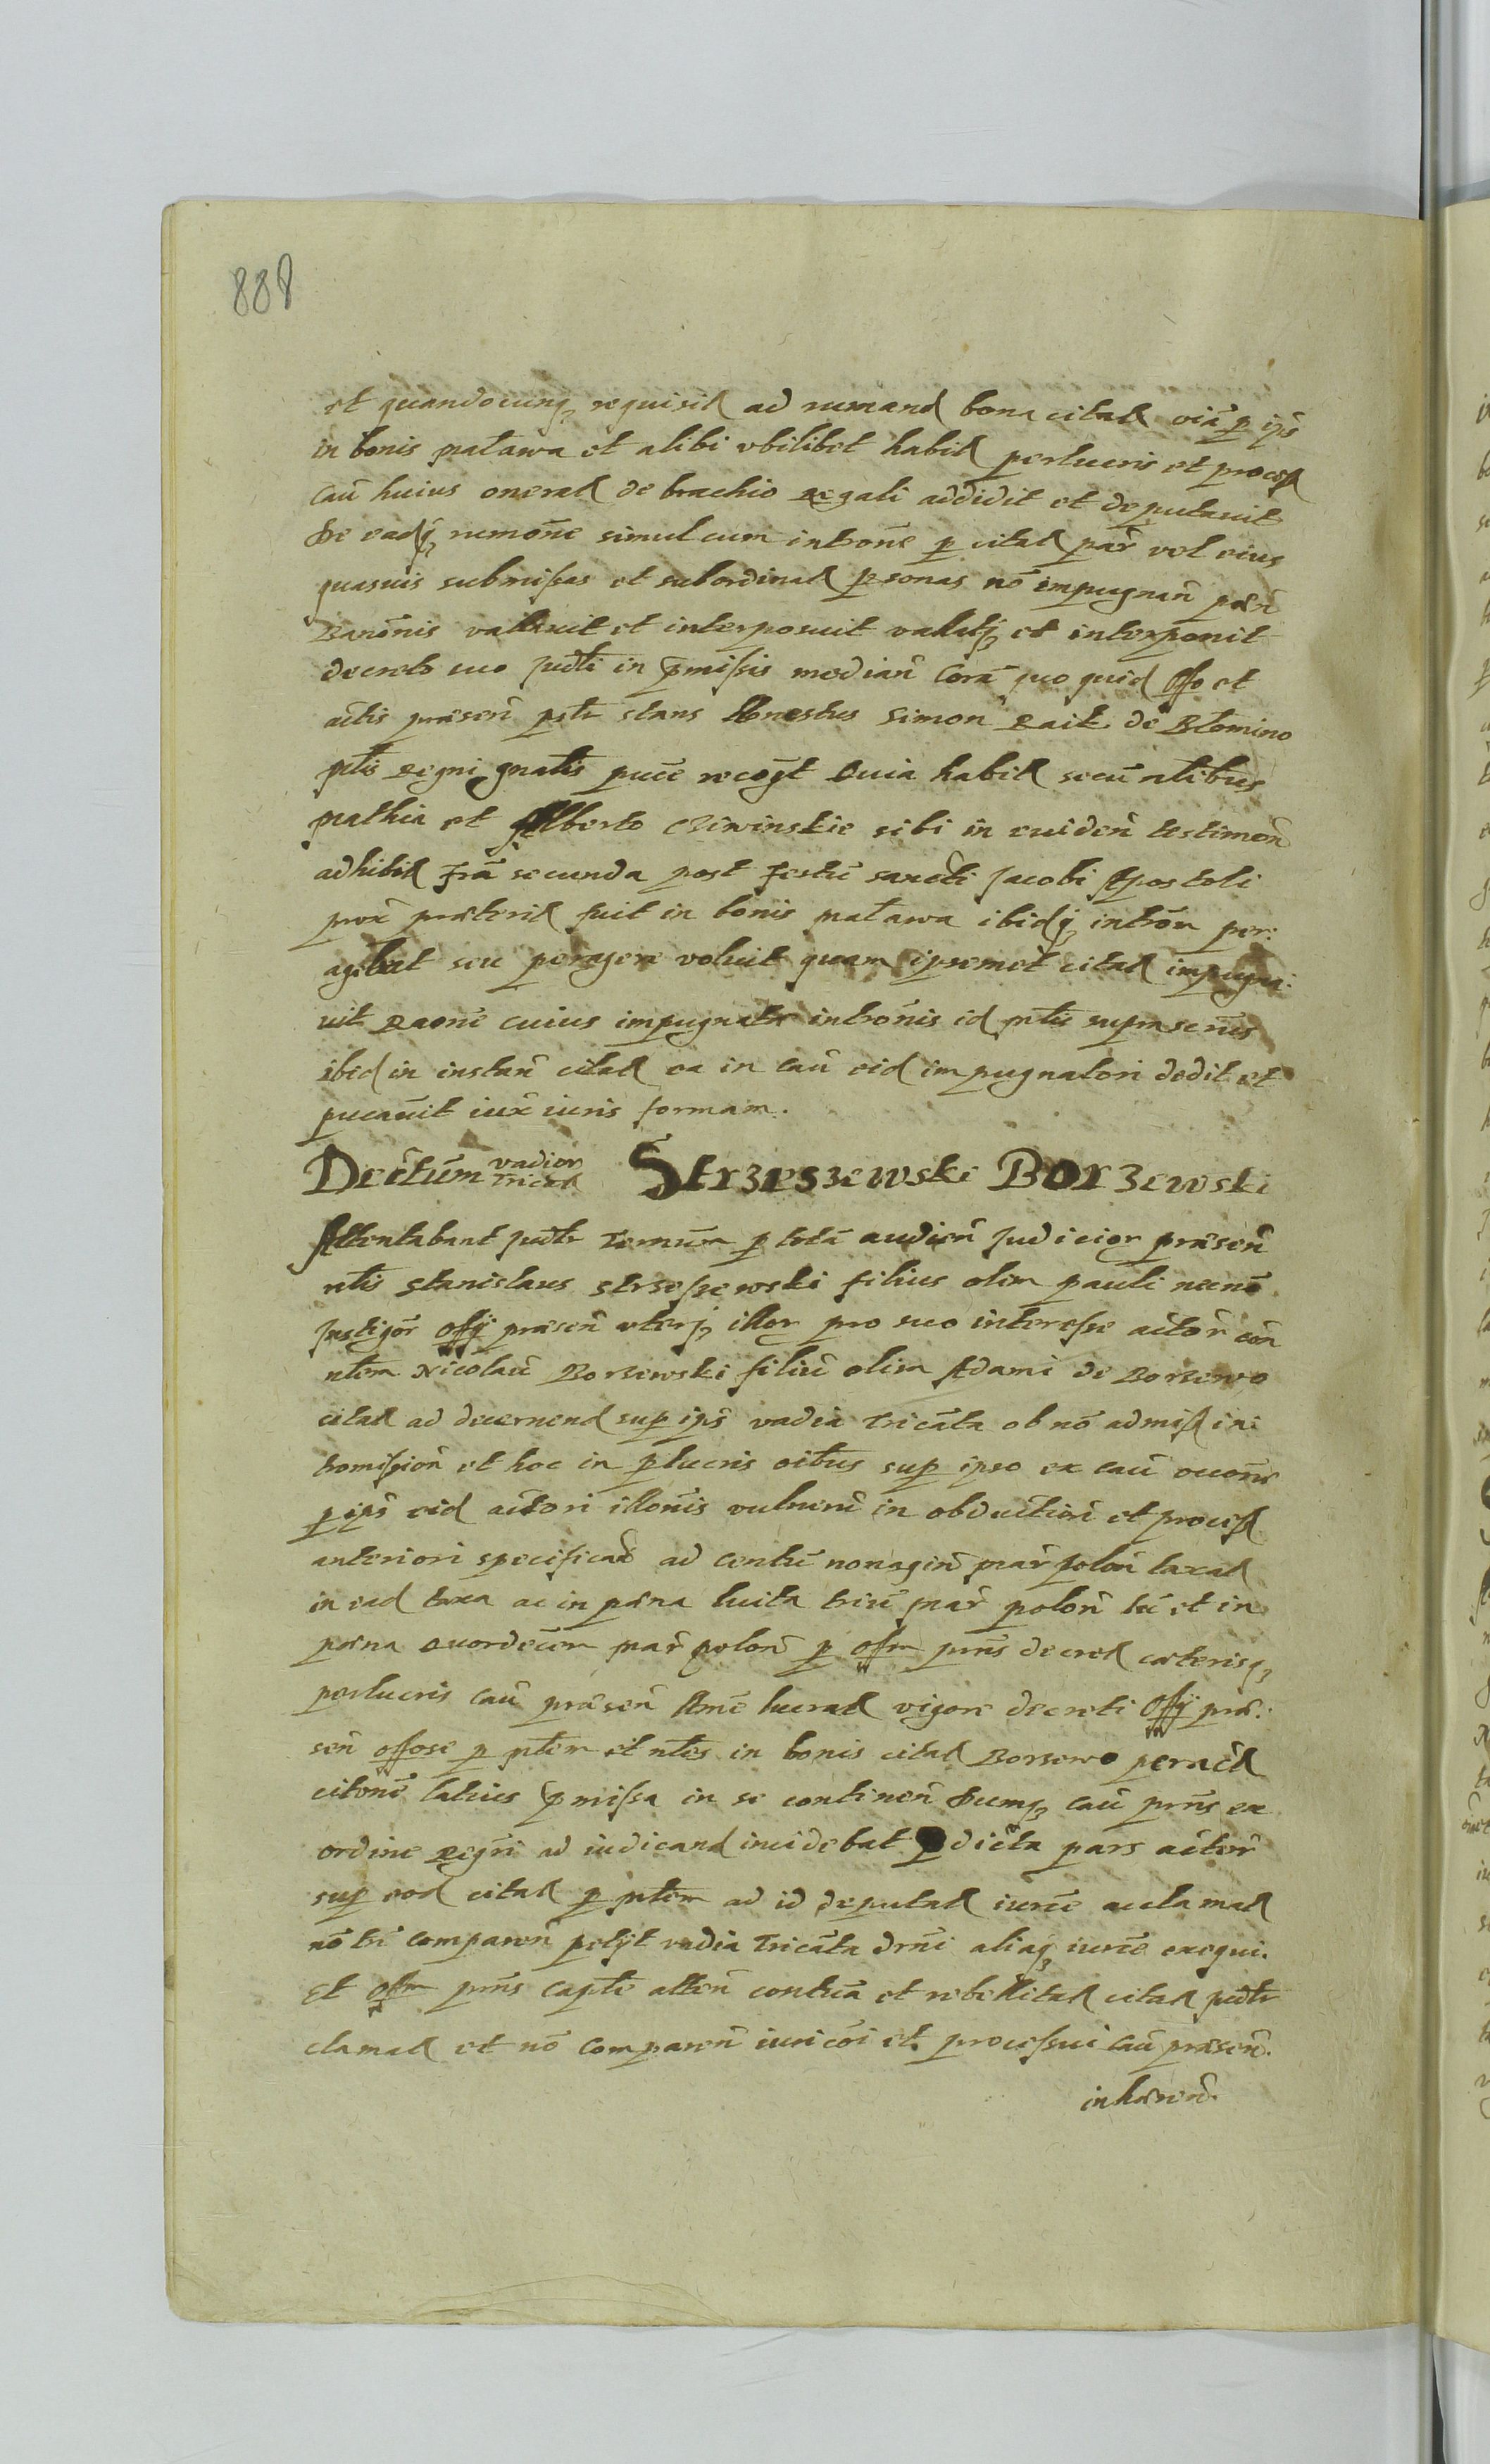 888
et quandocunq requisit ad rumand bona citat oia p ips
in bonis Maława et alibi ubilibet habit perlucris et process
cau huius onerat de brachio Regali addidit et deputavit
De eadq rumone simul cum introne p citat par vel eius
quasuis submissas et subordinat psonas no impugnan poen
Banonis vallavit et interposuit vallatq et interponit
decreto suo judli in pmissis median Cora quo quid Offo et
actis praesen psltr stans Honestus Simon Rait de Blomino
mtis Regni gnalis puce recogt Quia habit secu nlibus
Mathia et Alberto sibi in eviden testimon
adhibit Fra secunda post festu sancti Jacobi Apostoli
prox praeterit fuit in bonis Maława ibidq intron per:
agebat seu peragere voluit quam ipsemet citat impugna:
vit Raone cuius impugnatae intronis id mtu
ibid in instan citat ea in cau eid impugnatori dedit et
pucavit iux iuris formam.
Decretum vadior Tricat Strzeszewski Borzewski
Attentabant judtr Termum p tota audien Judicior praesen
nlis Stanislaus Strzeszewski filius olim Pauli necno
Instigor Offy praesen uterq illor pro suo interesse actor con
nlem Nicolau Borzewski filiu olim Adami de Borzewo
citat ad decernend sup ips vadia Tricata ob no admiss in:
tromission et hoc in plucris oibus sup ipso ex cau
p ips eid actori illonis vulneru in obduction et process
anteriori specificat ad centu nonagin mar polon taxat
in ead taxa ac in poena luita triu mar polon tu et in
poena Quordecem mar polon p Offm prns decret caeterisq
perlucris cau praesen Ame lucrat vigore decreti Offy prae:
sen offose p mlem et nles in bonis citat Borzewo peract
citone latius pmissa in se continen Dumq cau prns ex
ordine Regri ad iudicand incidebat pdicta pars actor
sup eod citat p mlem ad id deputat iurce acclamat
no tn comparen petyt vadia Tricata drni aliaq iurce exequi.
Et Offm prns Captle atten contuca et rebellitat citat judtr
clamat et no comparen iuri coi et processui cau praesen.
inhaeren.